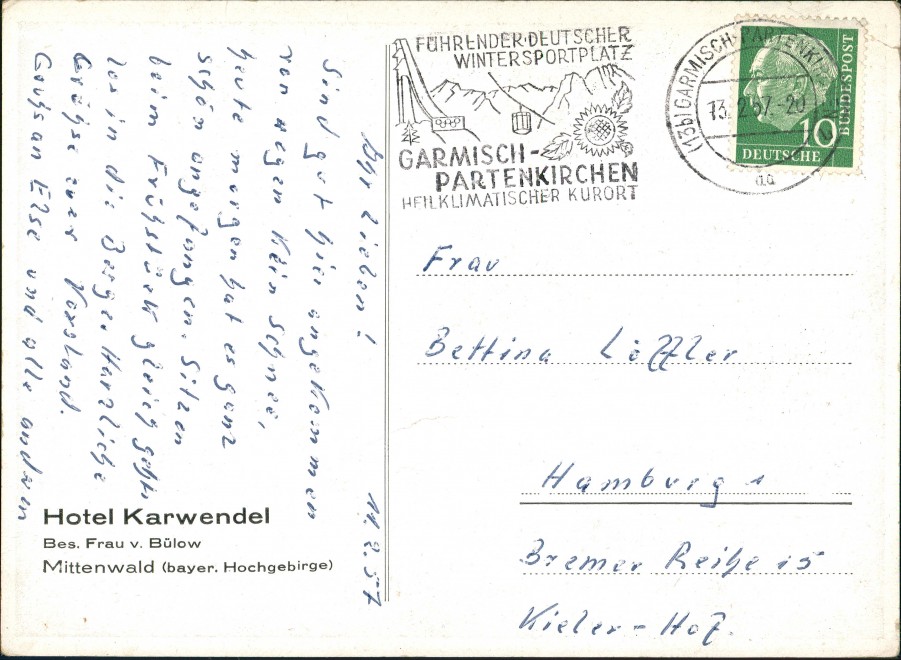 Ihr Lieben! 11.2.57
Sind gut hier angekommen
von wegen kein Schnee,
heute morgen hat es ganz
schön angefangen. Sitzen
beim Frühstück gleich gehts
los in die Berge. Herzliche
Grüsse euer Vorstand.
Else und alle andern
Hotel Karwendel
Bes. Frau v. Bülow
Mittenwald (bayer. Hochgebirge)
FÜHRENDER·DEUTSCHER
WINTERSPORTPLATZ
GARMISCH-
PARTENKIRCHEN
HEILKLIMATISCHER KURORT
(13b) GARMISCH-PARTENKI
13.2.57-20
aa
10
DEUTSCHE
BUNDESPOST
Frau
Bettina Löffler
Hamburg 1
Bremer Reihe 15
Kieler-Hof.